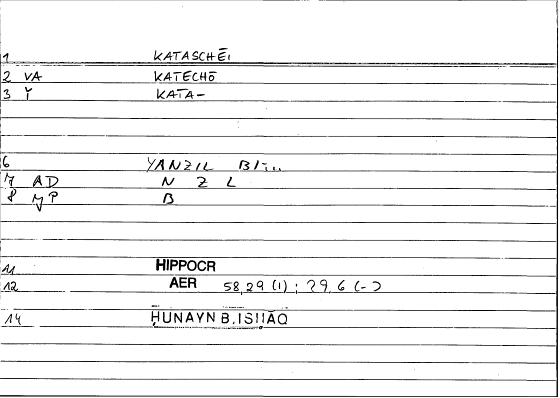 1 KATASCHĒi
2 VA KATECHŌ
3 Ỉ KATA-
6 YANZIL BI-..
7 AD N Z L
8 MP B
11 HIPPOCR
12 AER 58,29 (1) ; 79,6 (-)
14 ḤUNAYN B. ISḤĀQ